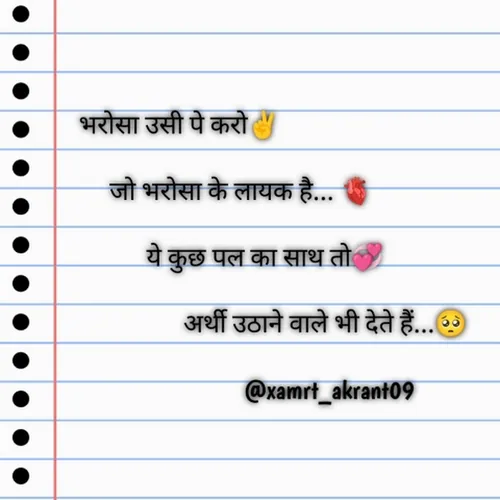 भरोसा उसी पे करो✌️
जो भरोसा के लायक है... 🫀
ये कुछ पल का साथ तो💞
अर्थी उठाने वाले भी देते हैं...🥺
@xamrt_akrant09